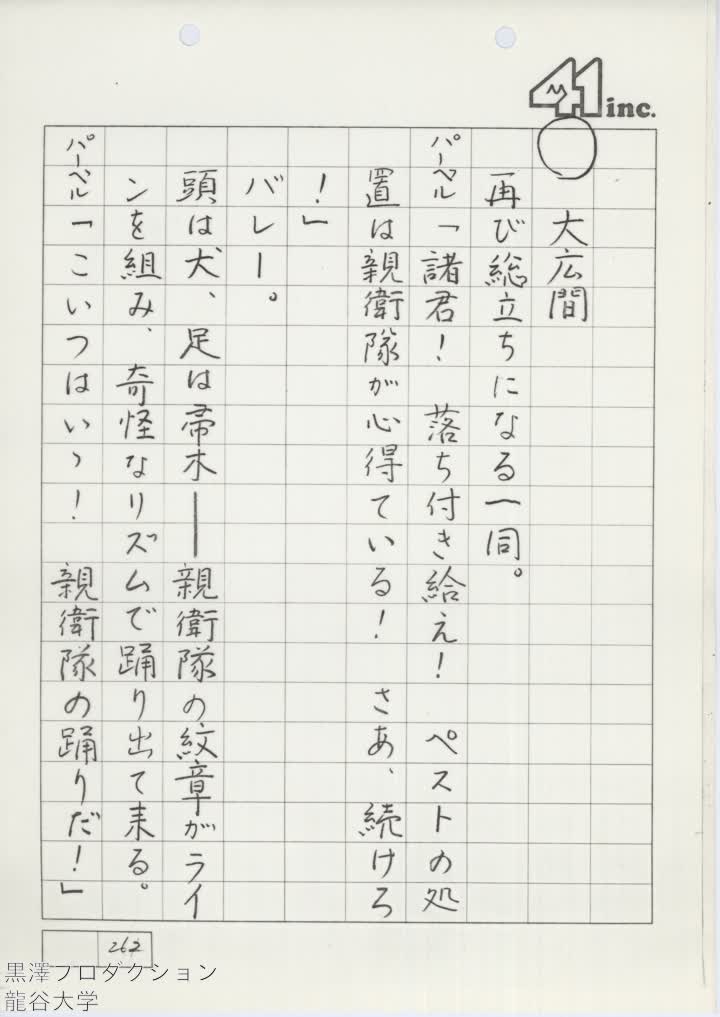 41 inc.
○ 大広間
再び総立ちになる一同。
パーペル「諸君！　落ち付き給え！　ペストの処
置は親衛隊が心得ている！　さあ、続けろ
！」
バレー。
頭は犬、足は帚木――親衛隊の紋章がライ
ンを組み、奇怪なリズムで踊り出て来る。
パーペル「こいつはいゝ！　親衛隊の踊りだ！」
262
黒澤プロダクション
龍谷大学